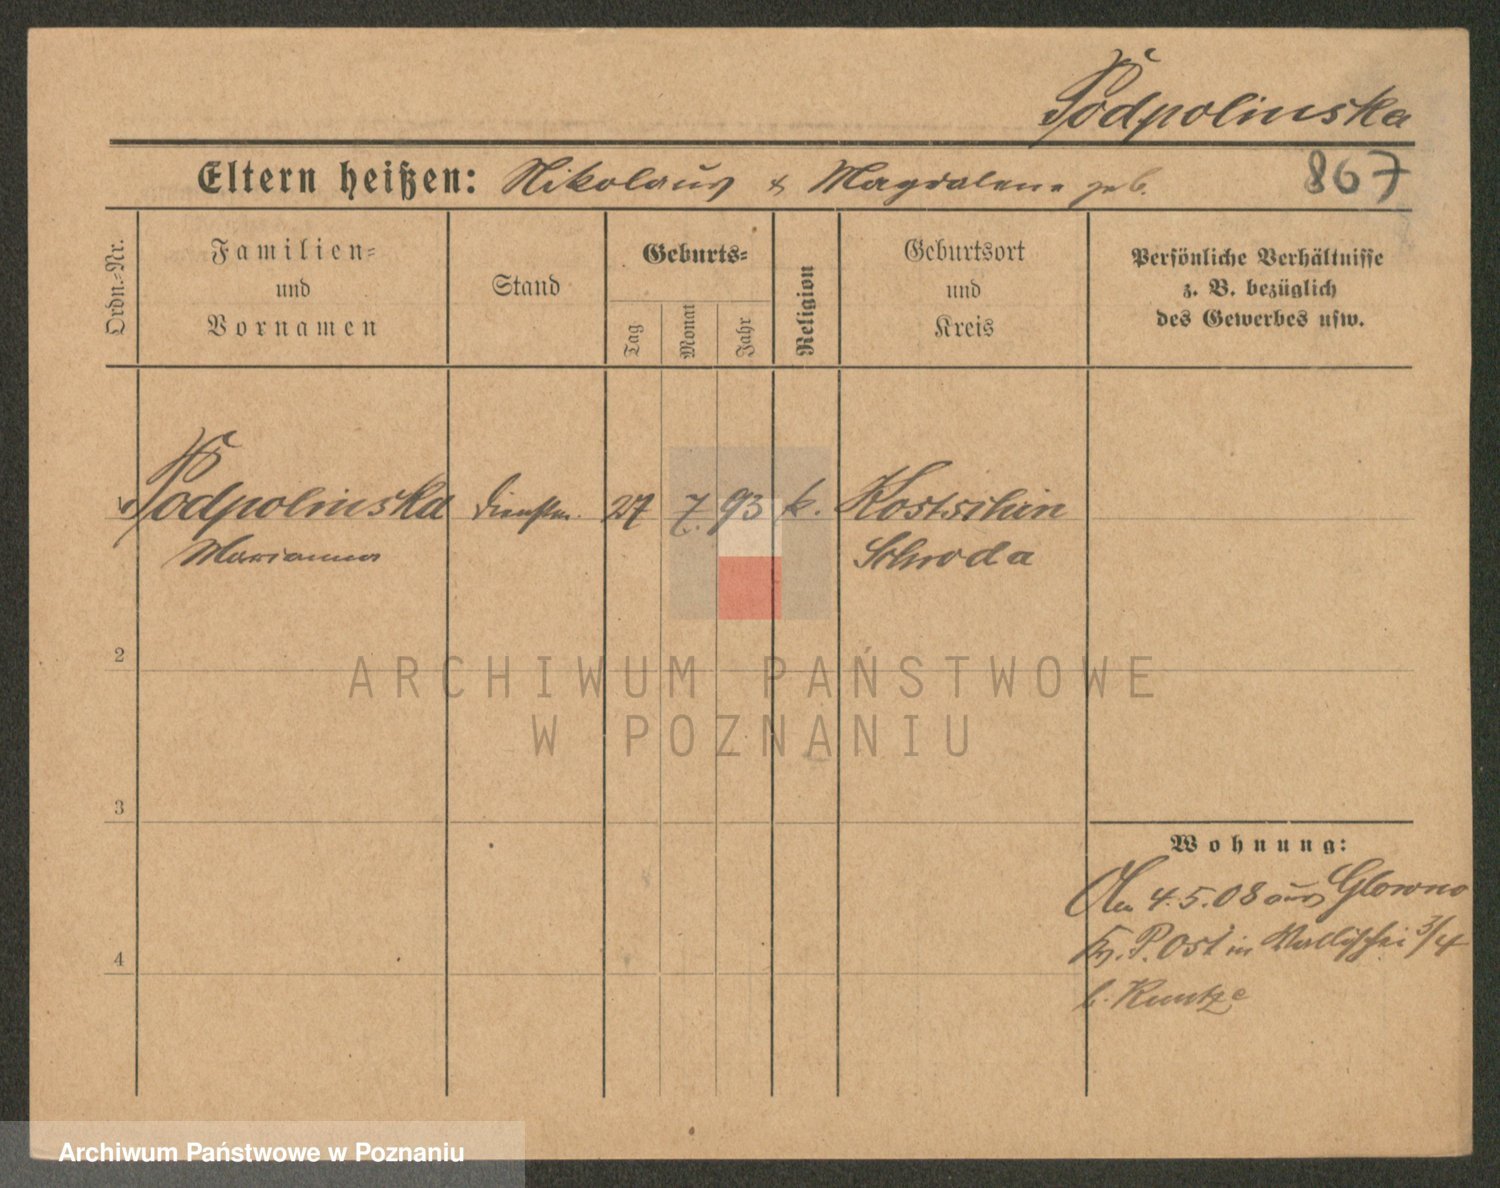 Podpolinska
Eltern heißen: Nikolaus & Magdalena geb. 867
Ordn.-Nr.
Familien-
und
Vornamen
Stand
Geburts-
Tag
Monat
Jahr
Religion
Geburtsort
und
Kreis
Persönliche Verhältnisse
z. B. bezüglich
des Gewerbes usw.
Podpolinska Dienstm. 27 7. 93 k. Kostschin
Marianna Schroda
2
ARCHIWUM PAŃSTWOWE
W POZNANIU
3
Wohnung:
4.5.08 aus Glowno
Kr. P. Ost in Wallischei 3/4
4
b. Kuntze
Archiwum Państwowe w Poznaniu